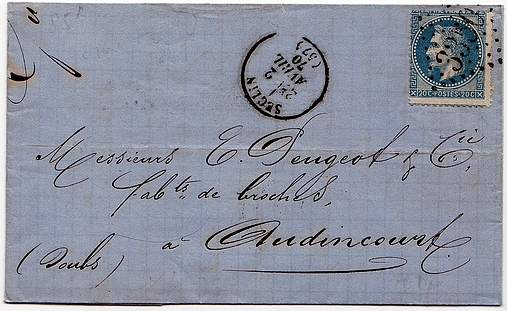 SECLIN
2
AVRIL
70
(57)
20C·POSTES·20C
Messieurs E. Peugeot & Cie,
fabts de broches,
à Audincourt.
(Doubs)